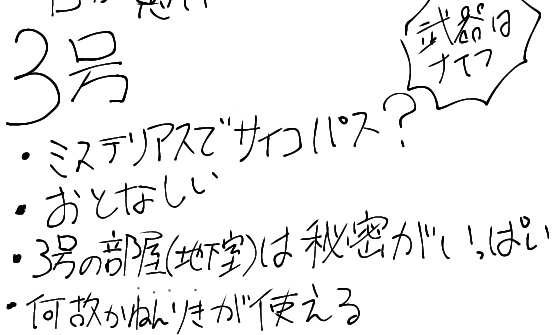 3号
武器は
ナイフ
・ミステリアスでサイコパス?
・おとなしい
・3号の部屋(地下室)は秘密がいっぱい
・何故かねんりきが使える